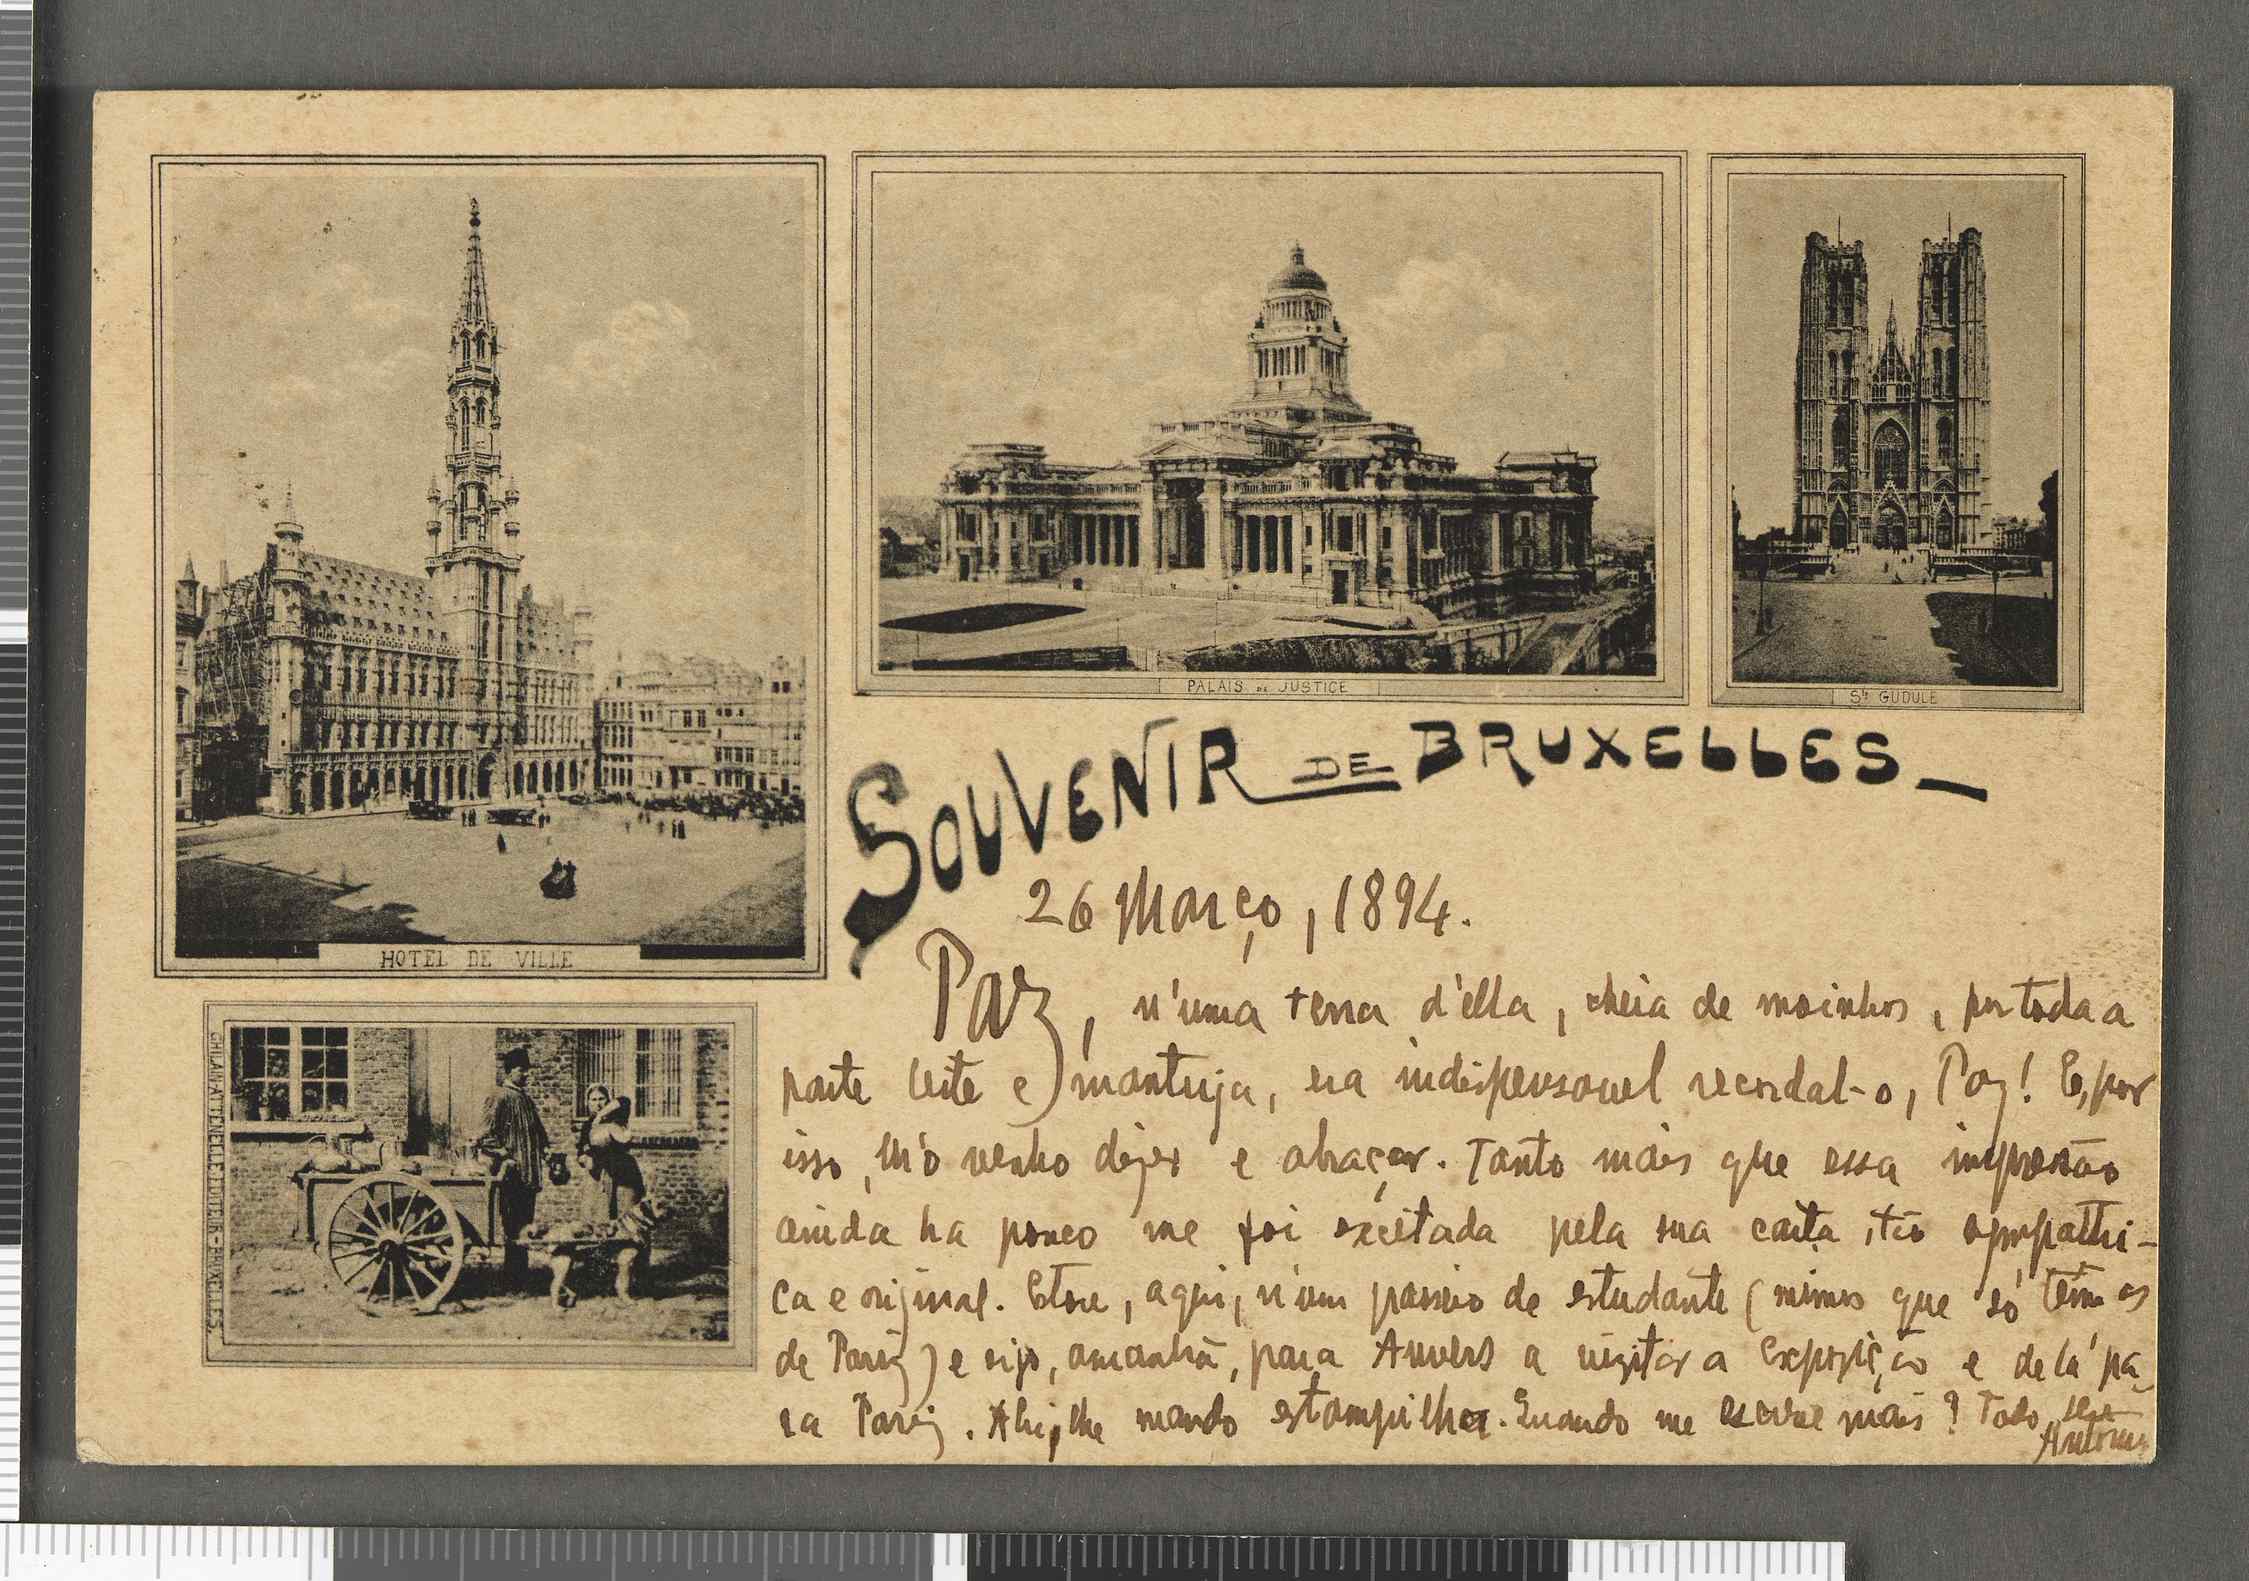 HOTEL DE VILLE
PALAIS DE JUSTICE
Ste GUDULE
GHILAIN-ATTENELLE EDITEUR-BRUXELLES.
SOUVENIR DE BRUXELLES
26 Março, 1894.
Paz, n'uma terra d'ella, cheia de moinhos, por toda a
parte leite e mantuja, era indispensavel recordal-o, Paz! E, por
isso, lh'o venho dizer e abraçar. Tanto mais que essa impressão
ainda ha pouco me foi excitada pela sua carta, tão sympathi-
ca e original. Estou, aqui, n'um passeio de estudante (mimos que só têm os
de Pariz) e sigo, amanhã, para Anvers a vizitar a Expozição e de lá pa-
ra Pariz. Ahi, lhe mando estampilha. Quando me escreve mais? Todo seu
Antonio